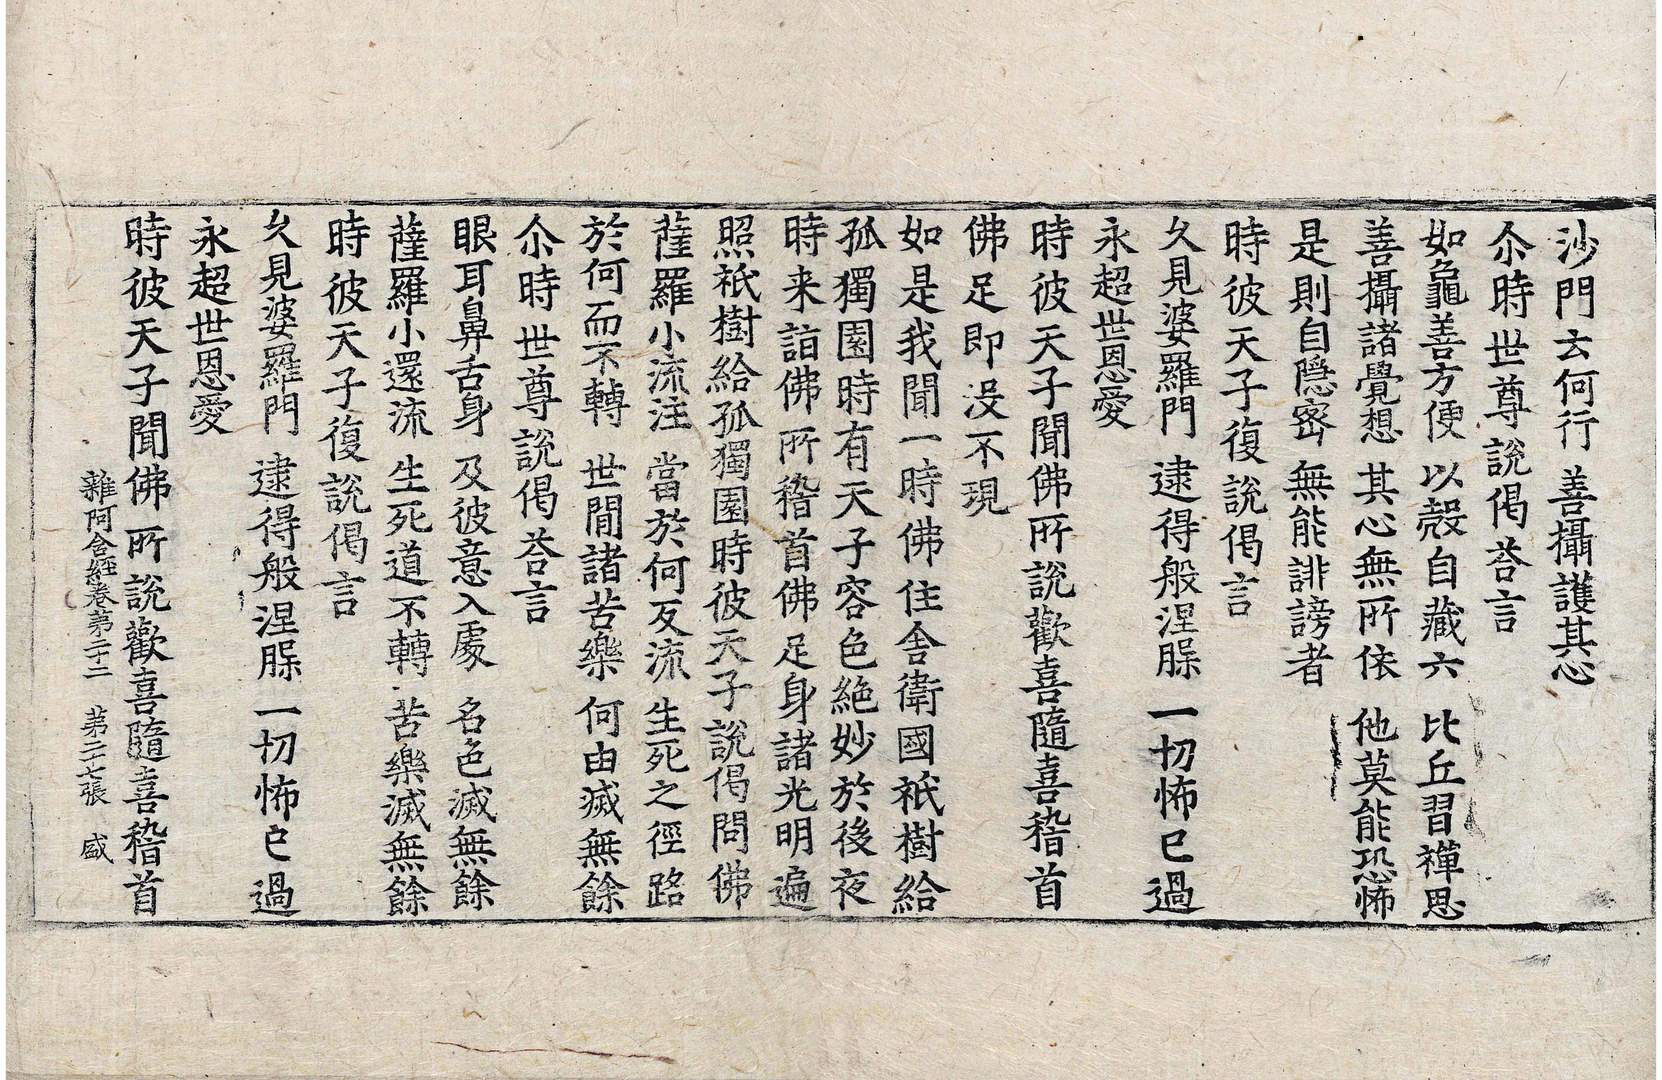 沙門云何行 善攝護其心
尒時世尊說偈荅言
如龜善方便 以殼自藏六 比丘習禪思
善攝諸覺想 其心無所依 他莫能恐怖
是則自隱密 無能誹謗者
時彼天子復說偈言
久見婆羅門 逮得般涅槃 一切怖已過
永超世恩愛
時彼天子聞佛所說歡喜隨喜稽首
佛足即没不現
如是我聞一時佛住舍衛國祇樹給
孤獨園時有天子容色絶妙於後夜
時来詣佛所稽首佛足身諸光明遍
照祇樹給孤獨園時彼天子說偈問佛
薩羅小流注 當於何反流 生死之徑路
於何而不轉 世間諸苦樂 何由滅無餘
尒時世尊說偈荅言
眼耳鼻舌身 及彼意入處 名色滅無餘
薩羅小還流 生死道不轉 苦樂滅無餘
時彼天子復說偈言
久見婆羅門 逮得般涅槃 一切怖已過
永超世恩愛
時彼天子聞佛所說歡喜隨喜稽首
雜阿含經卷第二十二 第二十七張 盛